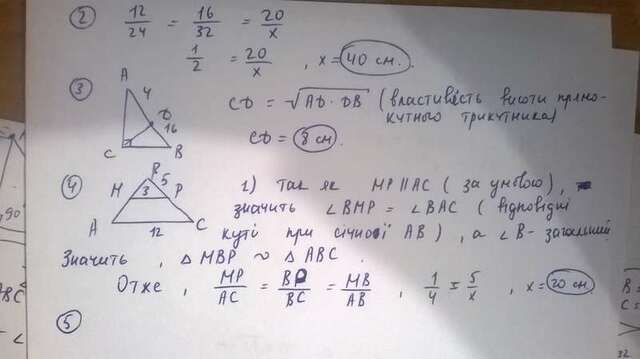 ② 12/24 = 16/32 = 20/x
1/2 = 20/x , x = 40 см.
③ A 4 D 16 C B
CD = √AD · DB (властивість висоти прямо-
кутного трикутника)
CD = 8 см
④ B 5 M 3 P A 12 C
1) Так як MP||AC (за умовою),
значить ∠BMP = ∠BAC (відповідні
куті при січної AB), а ∠B - загальний
Значить , △MBP ~ △ABC.
Отже , MP/AC = BP/BC = MB/AB , 1/4 = 5/x , x = 20 см.
⑤
90°
BC
B =
C =
32